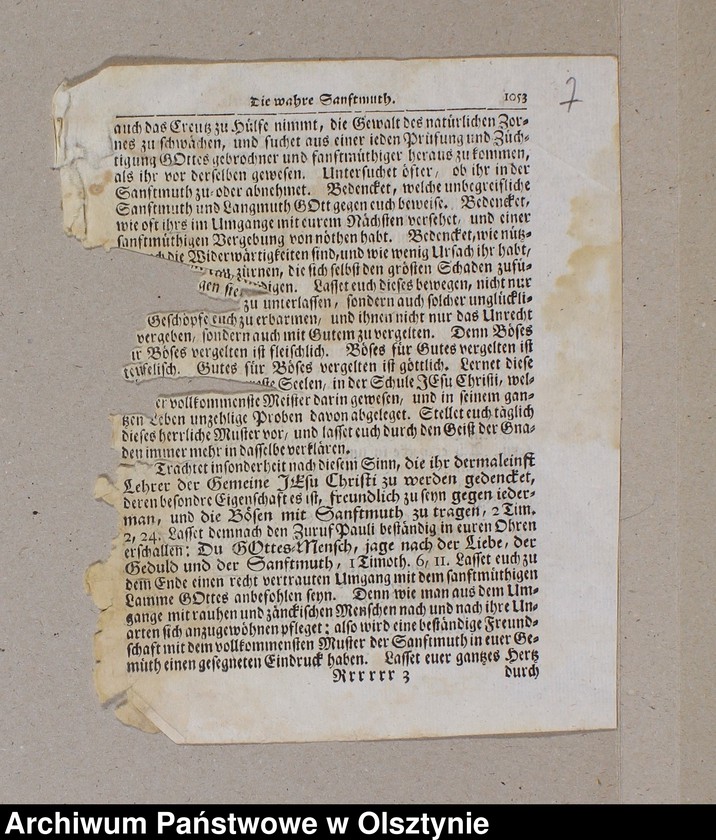 Die wahre Sanftmuth. 1053
7
auch das Creutz zu Hülfe nimmt, die Gewalt des natürlichen Zor-
nes zu schwächen, und suchet aus einer ieden Prüfung und Züch-
tigung GOttes gebrochner und sanftmüthiger heraus zu kommen,
als ihr vor derselben gewesen. Untersuchet öfter, ob ihr in der
Sanftmuth zu- oder abnehmet. Bedencket, welche unbegreifliche
Sanftmuth und Langmuth GOtt gegen euch beweise. Bedencket,
wie oft ihrs im Umgange mit eurem Nächsten versehet, und einer
sanftmüthigen Vergebung von nöthen habt. Bedencket, wie nütz-
die Widerwärtigkeiten sind, und wie wenig Ursach ihr habt,
zürnen, die sich selbst den grösten Schaden zufü-
gen sie digen. Lasset euch dieses bewegen, nicht nur
zu unterlassen, sondern auch solcher unglückli-
Geschöpfe euch zu erbarmen, und ihnen nicht nur das Unrecht
vergeben, sondern auch mit Gutem zu vergelten. Denn Böses
ür Böses vergelten ist fleischlich. Böses für Gutes vergelten ist
teufelisch. Gutes für Böses vergelten ist göttlich. Lernet diese
Seelen, in der Schule JEsu Christi, wel-
er vollkommenste Meister darin gewesen, und in seinem gan-
tzen Leben unzehlige Proben davon abgeleget. Stellet euch täglich
dieses herrliche Muster vor, und lasset euch durch den Geist der Gna-
den immer mehr in dasselbe verklären.
Trachtet insonderheit nach diesem Sinn, die ihr dermaleinst
Lehrer der Gemeine JEsu Christi zu werden gedencket,
deren besondre Eigenschaft es ist, freundlich zu seyn gegen ieder-
man, und die Bösen mit Sanftmuth zu tragen, 2 Tim.
2, 24. Lasset demnach den Zuruf Pauli beständig in euren Ohren
erschallen: Du GOttes-Mensch, jage nach der Liebe, der
Geduld und der Sanftmuth, 1 Timoth. 6, 11. Lasset euch zu
dem Ende einen recht vertrauten Umgang mit dem sanftmüthigen
Lamme GOttes anbefohlen seyn. Denn wie man aus dem Um-
gange mit rauhen und zänckischen Menschen nach und nach ihre Un-
arten sich anzugewöhnen pfleget; also wird eine beständige Freund-
schaft mit dem vollkommensten Muster der Sanftmuth in euer Ge-
müth einen gesegneten Eindruck haben. Lasset euer gantzes Hertz
Rrrrrr 3 durch
Archiwum Państwowe w Olsztynie